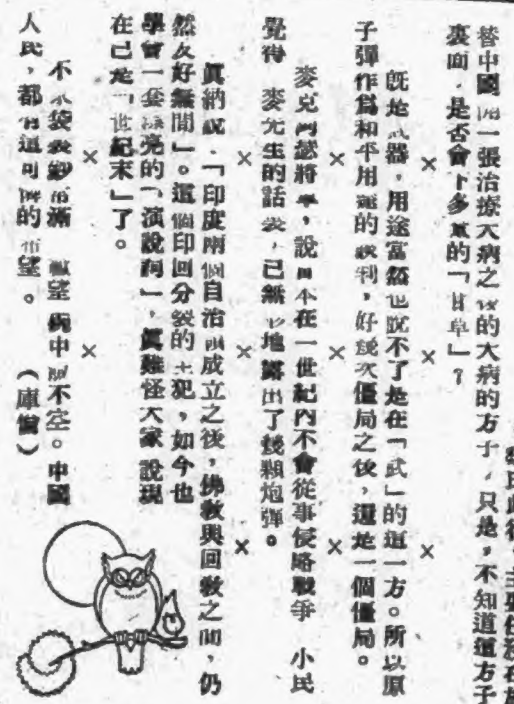 替中國開一張治療大病之後的大病的方子，只是，不知道這方子
裏面，是否會下多量的「甘草」？
×　×　×
既是武器，用途當然也脫不了是在「武」的這一方。所以原
子彈作爲和平用途的談判，好幾次僵局之後，還是一個僵局。
×　×　×
麥克阿瑟將軍，說日本在一世紀內不會從事侵略戰爭　小民
覺得　麥先生的話裏，已無心地露出了幾顆炮彈。
×　×　×
眞納說，「印度兩個自治領成立之後，佛敎與回敎之間，仍
然友好無間」。這個印回分裂的主犯，如今也
學會一套漂亮的「演說詞」，眞難怪大家說現
在已是「世紀末」了。
×　×
不求袋裝鈔票滿　祗望碗中飯不空。中國
人民，都有這可憐的希望。　（庫當）